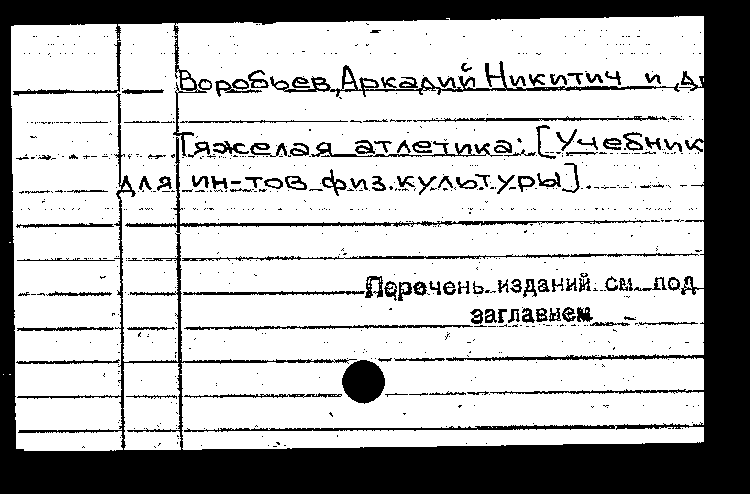 Воробьев, Аркадий Никитич и др
Тяжелая атлетика: [Учебник
для ин-тов физ.культуры].
Перечень изданий см. под
заглавием